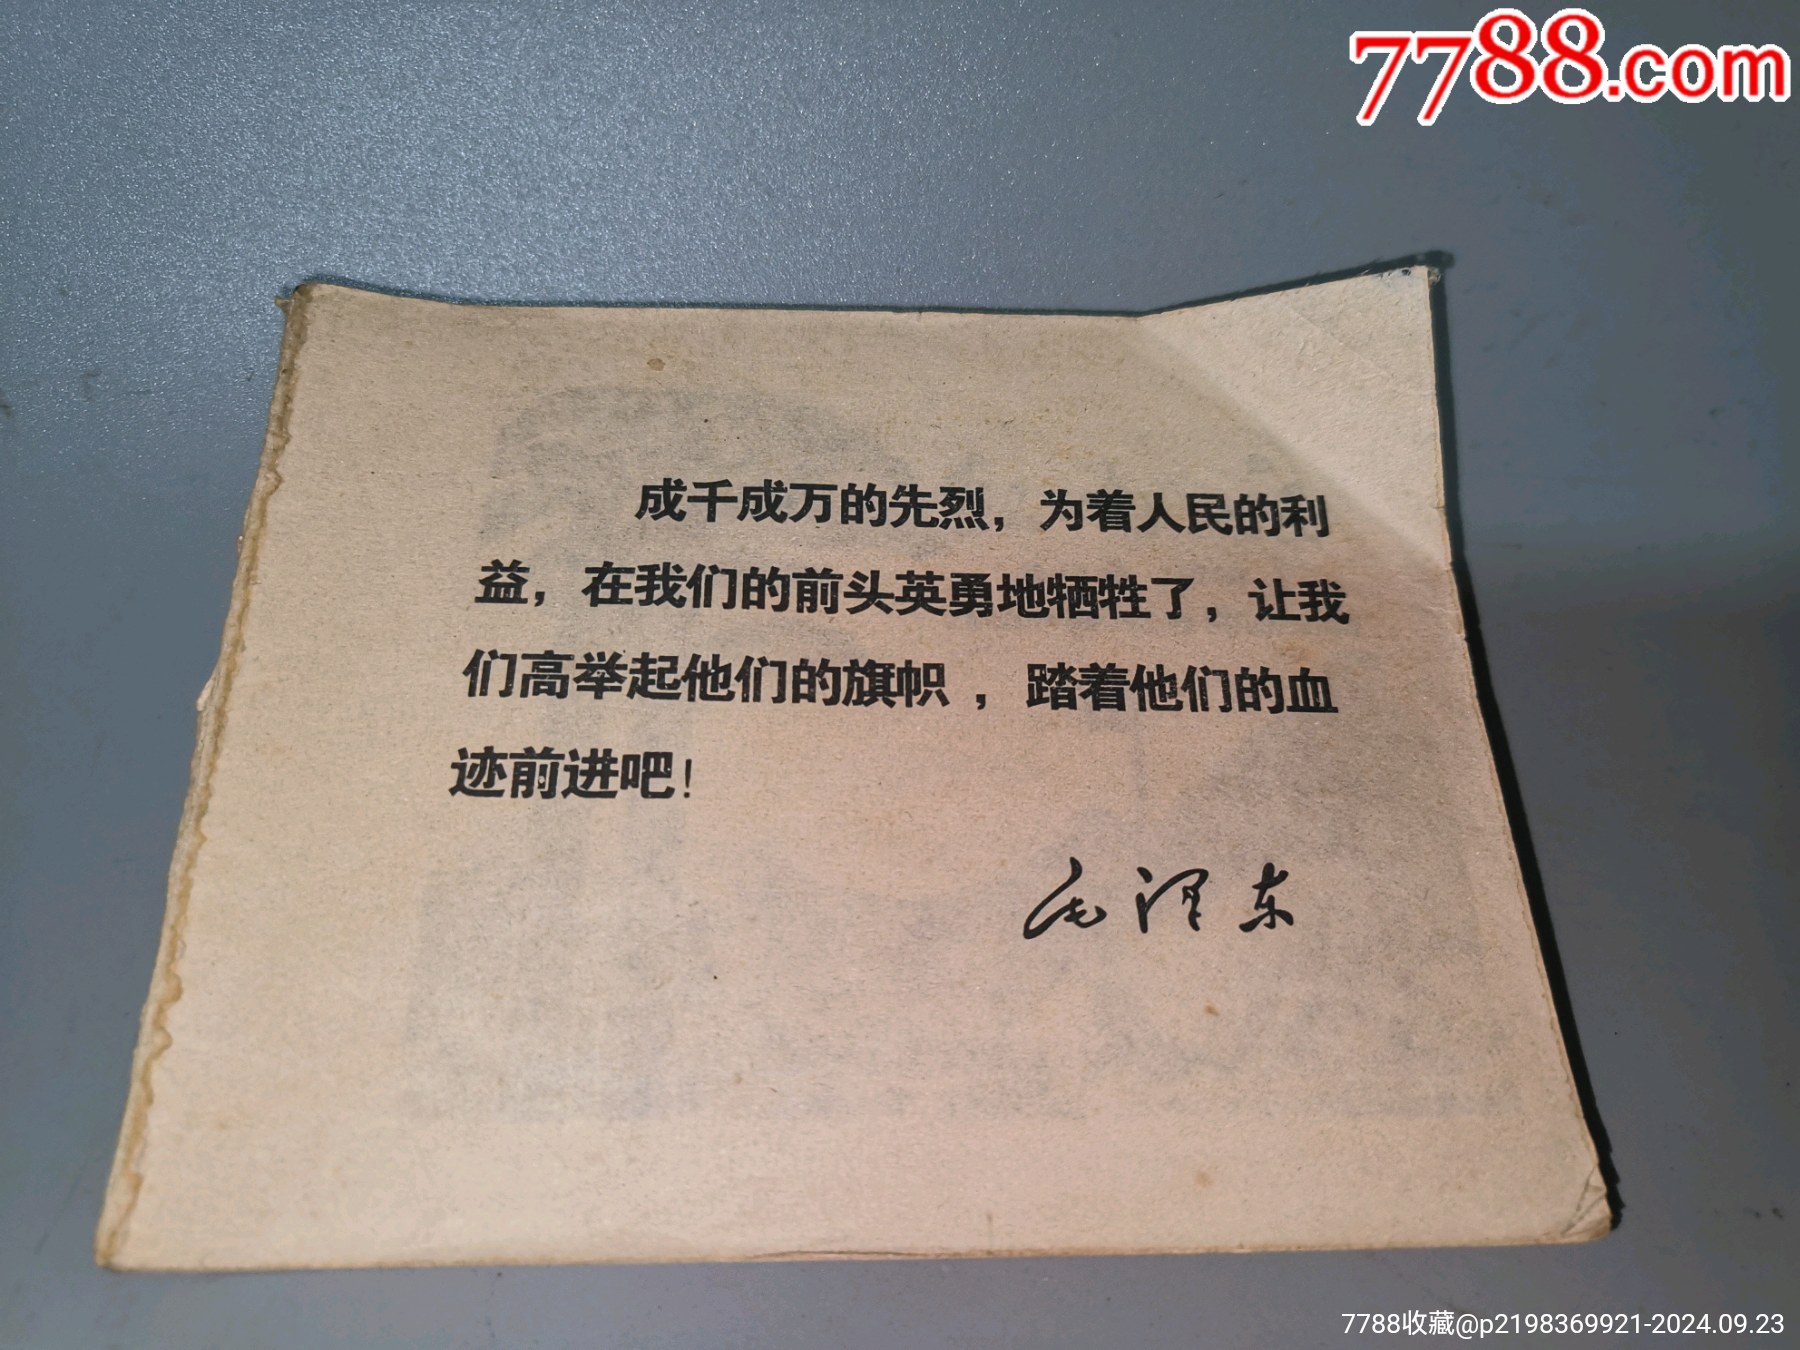 7788.com
成千成万的先烈，为着人民的利
益，在我们的前头英勇地牺牲了，让我
们高举起他们的旗帜，踏着他们的血
迹前进吧！
毛泽东
7788收藏@p2198369921-2024.09.23